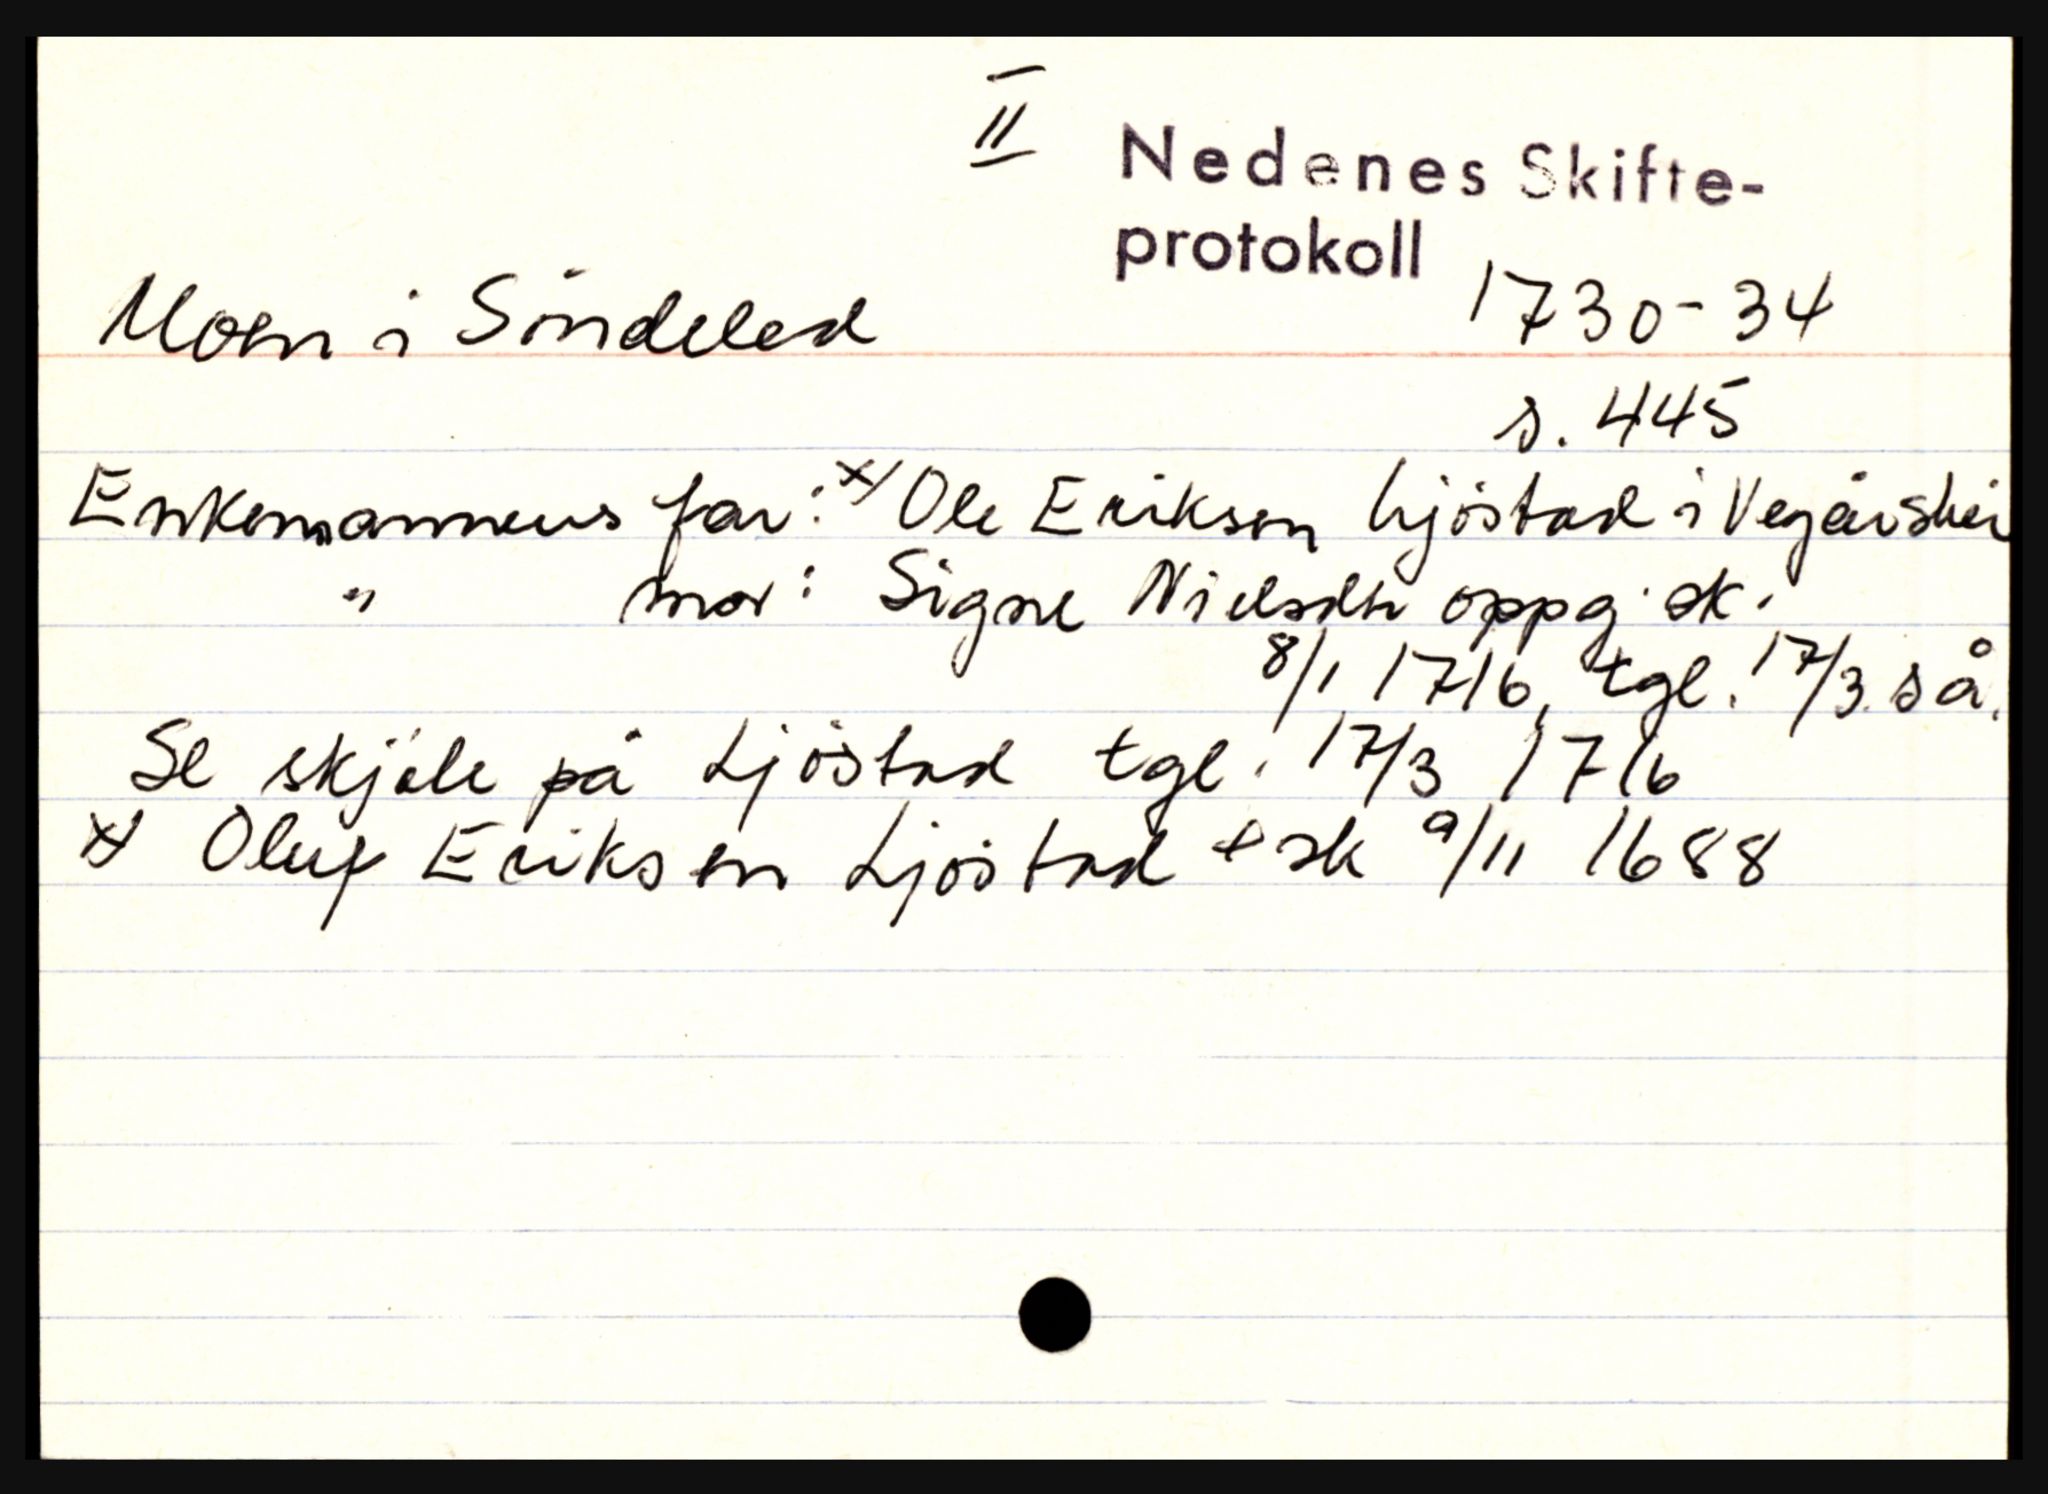 II
Nedenes Skifte-
protokoll
Moen i Söndeled
1730-34
s. 445
Enkemannens far: x/ Ole Eriksen Ljöstad i Vegårshei
" mor: Signe Nielsdtr oppg. sk.
8/1 1716, tgl. 17/3 s å.
Se skjöte på Ljöstad tgl. 17/3 1716
x/ Oluf Eriksen Ljöstad sk 9/11 1688